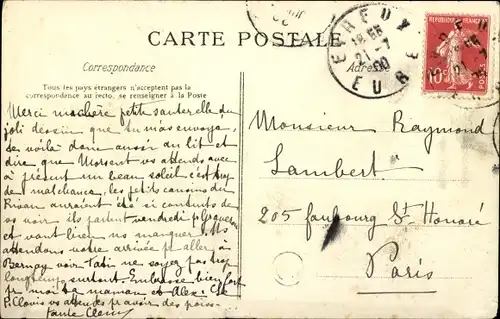 CARTE POSTALE
Correspondance
Adresse
Tous les pays étrangers n'acceptent pas la
correspondance au recto, se renseigner à la Poste
EUREUX
18 55
21-7
EURE
RÉPUBLIQUE FRANÇAISE
10c
POSTES
Merci ma chère petite sauterelle du
joli dessin que tu m'as envoyé,
Les voilà donc au lit et
dire que vs attends avec
à présent un beau soleil c'est
de malchance, les petits cousins du
auraient été si contents de
vs voir ils partent vendredi
et vont bien ns manquer
attendons votre arrivée pr aller à
Bernay voir Tatin ne soyez pas trop
longtemps surtout. Embrasse bien fort
pr moi ta maman et Alex.
P. Clovis vs attends pr avoir des
Tante
Monsieur Raymond
Lambert
205 faubourg St Honoré
Paris